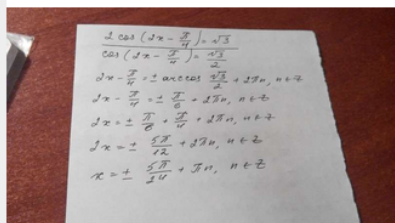 2 cos (2x - π/4) = √3
cos (2x - π/4) = √3/2
2x - π/4 = ± arccos √3/2 + 2πn, n ∈ Z
2x - π/4 = ± π/6 + 2πn, n ∈ Z
2x = ± π/6 + π/4 + 2πn, n ∈ Z
2x = ± 5π/12 + 2πn, n ∈ Z
x = ± 5π/24 + πn, n ∈ Z